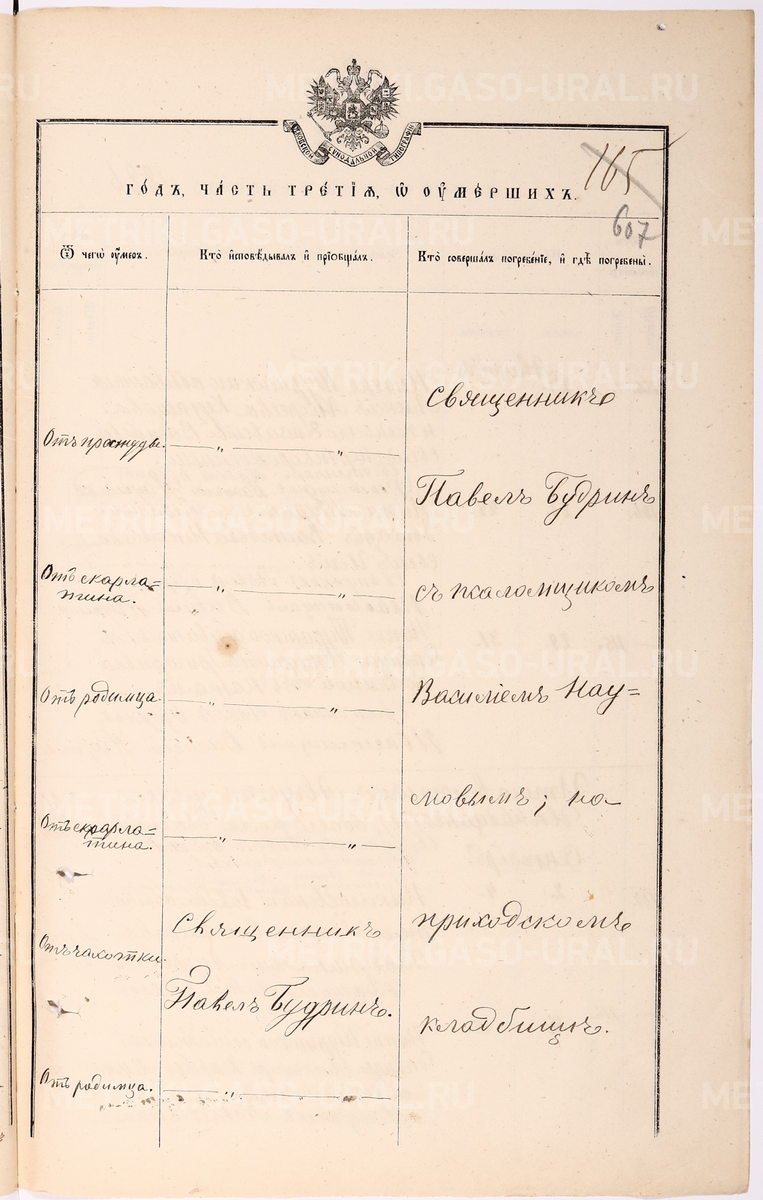 METRIKI.GASO-URAL.RU
МОСКОВСКОЙ СѴНОДАЛЬНОЙ ТИПОГРАФІИ
165
ГО́ДЪ, ЧА́СТЬ ТРЕ́ТІѦ, Ѡ ОУ҆МЕ́РШИХЪ.
607
Ѿ чегѡ̀ оу҆́меръ.
Кто̀ и҆сповѣ́дывалъ и҆ прїѡбща́лъ.
Кто̀ соверша́лъ погребе́нїе, и҆ гдѣ̀ погребены̀.
Отъ простуды.
— „ — „ —
Священникъ
Павелъ Будринъ
Отъ скарла=
тина.
— „ — „ —
съ псаломщикомъ
Отъ родимца.
— „ — „ —
Василіемъ Нау=
мовымъ; на
Отъ скарла=
тина.
— „ — „ —
Отъ чахотки.
Священникъ
Павелъ Будринъ.
приходскомъ
кладбищѣ.
Отъ родимца.
— „ — „ —